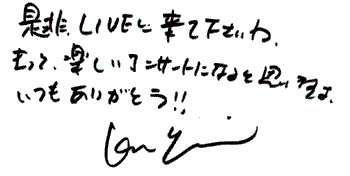 是非、LIVEに来て下さいね。
きっと、楽しいコンサートになると思いますよ。
いつもありがとう!!